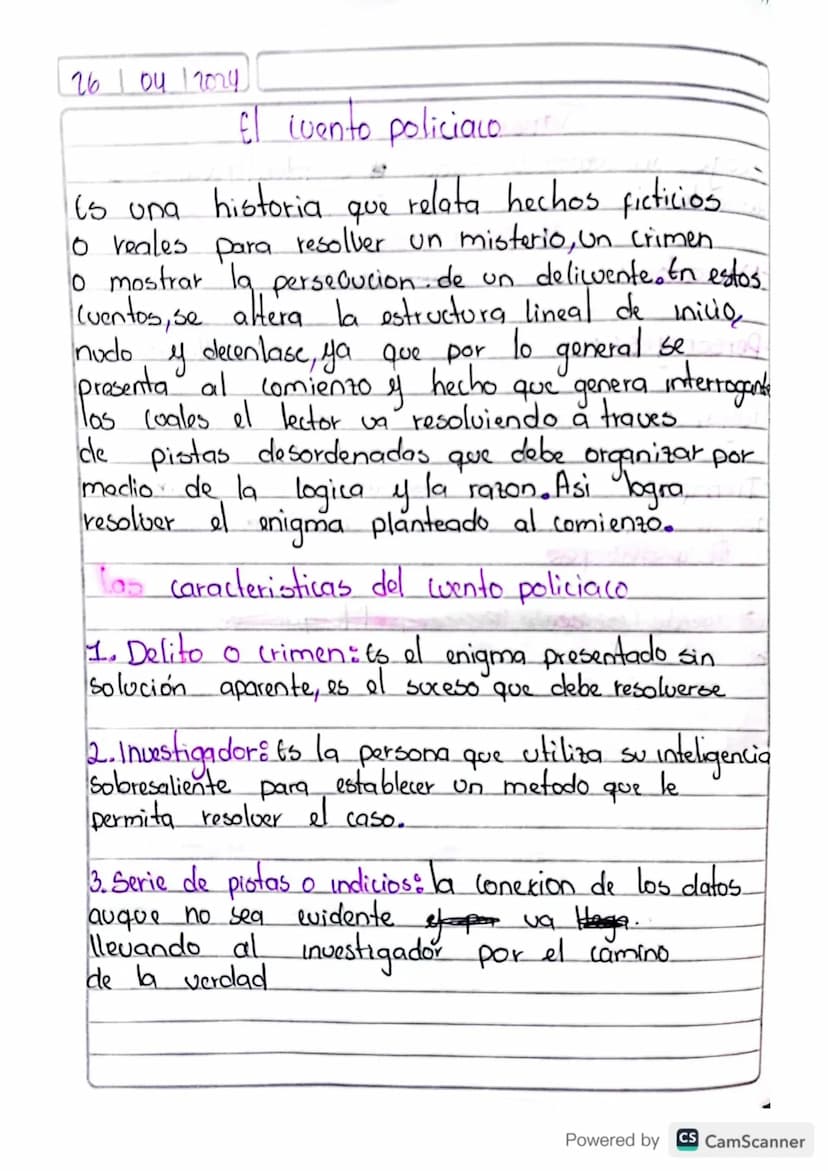 26 | 04 | 2024
El cuento policiaco
Es una historia que relata hechos ficticios
o reales para resolber un misterio, un crimen
o mostrar la persecucion de un delicuente. En estos
cuentos, se altera la estructura lineal de inicio,
nudo y decenlase, ya que por lo general se
presenta al comienzo y hecho que genera interrogante
los cuales el lector va resolviendo a traves
de pistas desordenadas que debe organizar por
medio de la logica y la razon. Asi logra
resolber el enigma planteado al comienzo.
Las caracteristicas del cuento policiaco
1. Delito o crimen: Es el enigma presentado sin
solución aparente, es el suceso que debe resolverse
2. Investigador: Es la persona que utiliza su inteligencia
sobresaliente para establecer un metodo que le
permita resolver el caso.
3. Serie de pistas o indicios: la conexion de los datos
auque no sea evidente va
llevando al investigador por el camino
de la verdad
Powered by CS CamScanner